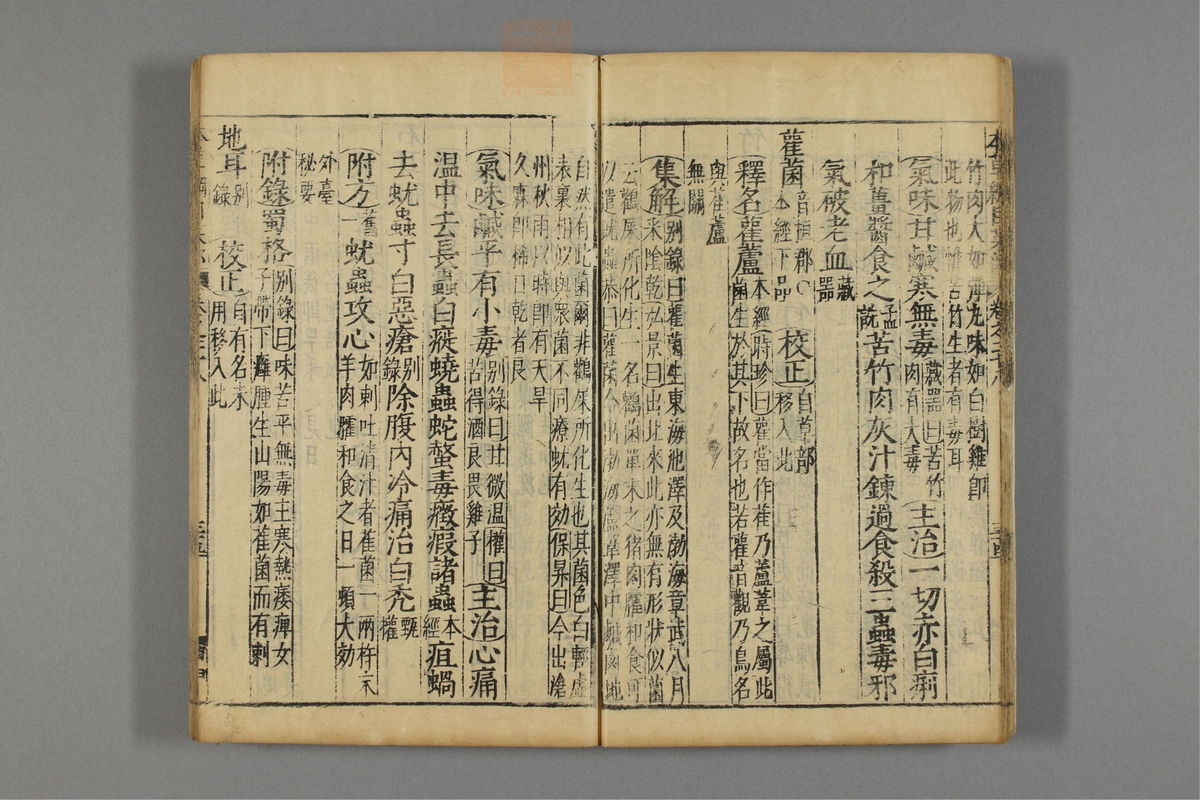 竹肉大如彈丸味如白樹雞即
此物也惟苦竹生者有毒耳
氣味甘鹹寒無毒藏器曰苦竹肉有大毒主治一切赤白痢
和薑醬食之孟詵苦竹肉灰汁鍊過食殺三蟲毒邪
氣破老血藏器
雚菌音桓郡○本經下品校正自草部移入此
釋名雚蘆本經時珍曰雚當作萑乃蘆葦之屬此
菌生於其下故名也若雚音觀乃鳥名
與萑蘆
無關
集解別錄曰雚菌生東海池澤及渤海章武八月
采陰乾弘景曰出北來此亦無有形狀似菌
云鸛屎所化生一名鸛菌單末之猪肉臛和食可
以遣蚘蟲恭曰雚菌今出渤海蘆葦澤中鹹鹵地
自然有此菌爾非鸛屎所化生也其菌色白輕虛
表裏相似與衆菌不同療蚘有効保昇曰今出滄
州秋雨以時即有天旱
久霖即稀日乾者良
氣味鹹平有小毒別錄曰甘微温權曰苦得酒良畏雞子主治心痛
温中去長蟲白瘲蟯蟲蛇螫毒癥瘕諸蟲本經疽蝸
去蚘蟲寸白惡瘡別錄除腹內冷痛治白禿甄權
附方舊一蚘蟲攻心如刺吐清汁者萑菌一兩杵末
羊肉臛和食之日一頓大効
外臺
秘要
附錄蜀格別錄曰味苦平無毒主寒熱痿痺女
子帶下癰腫生山陽如萑菌而有刺
地耳別錄校正自有名未用移入此